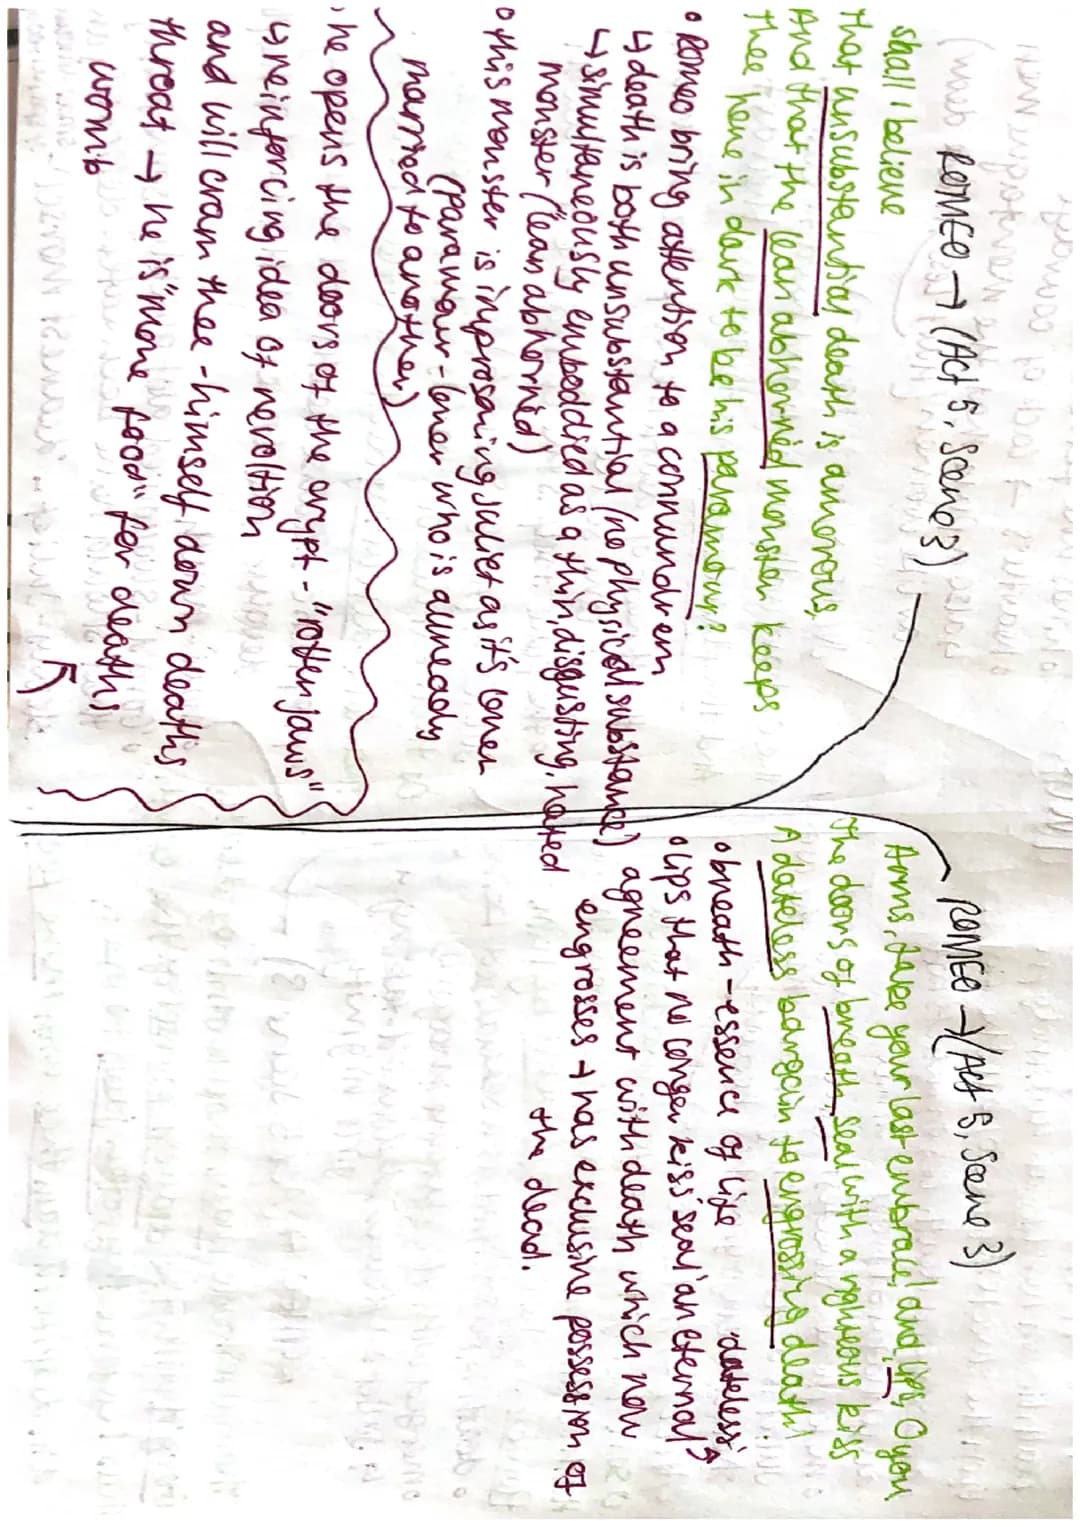 ROMEO → (Act 5, Scene 3)
shall i believe
that unsubstantial death is amorous,
And that the lean abhorred monster keeps
Thee here in dark to be his paramour?
• Romeo bring attention to a connundrem
↳ death is both unsubstantial (no physical substance)
→ simultaneously emboddied as a thin, disgusting, hated
monster ("lean, abhorred)
• this monster is inprosoning Juliet as it's lover
(paramour - lover who is allready
married to another)
• he opens the doors of the crypt - "rotten jaws"
↳ reinforcing idea of revoltion
and will cram thee - himself, down deaths
throat → he is "more food" for deaths
womb
ROMEO → (Act 5, Scene 3)
Arms, take your last embrace! and, lips, O you
The doors of breath, seal with a righteous kiss
A dateless bargain to engrossing death!
• breath - essence of life 'dateless'
• lips that no longer kiss 'seal' an eternal
agreement with death which now
engrosses → has exclusive possession of
the dead.